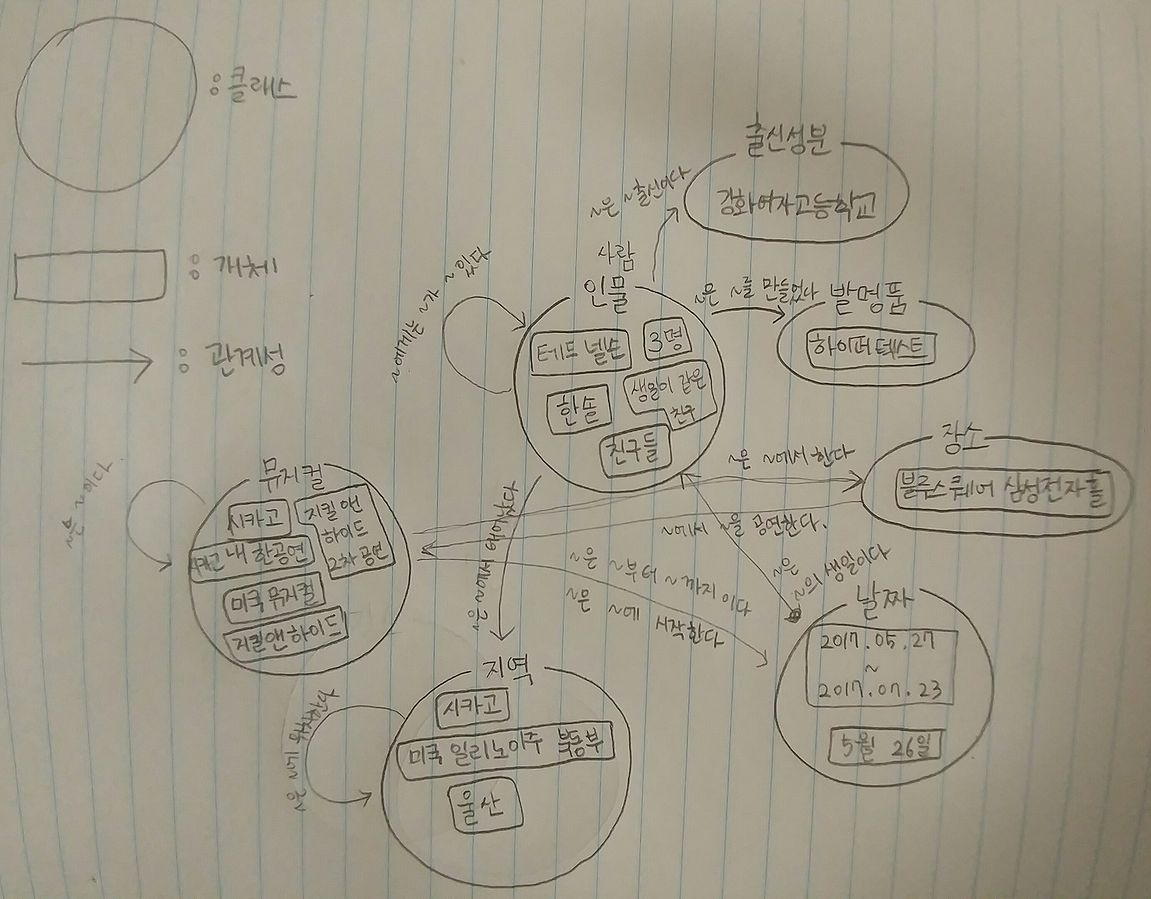 : 클래스
: 개체
: 관계성
출신성분
강화여자고등학교
~은 ~출신이다
사람
인물
테드 넬슨
3명
한솔
생일이 같은
친구
친구들
~에게는 ~가 ~ 있다
~은 ~를 만들었다
발명품
하이퍼텍스트
장소
블루스퀘어 삼성전자홀
~은 ~에서 한다
~에서 ~을 공연한다.
~은 ~부터 ~까지 이다
~은 ~에 시작한다
~은
~의 생일이다
날짜
2017.05.27
~
2017.07.23
5월 26일
뮤지컬
시카고
지킬 앤
하이드
2차 공연
시카고 내한공연
미국 뮤지컬
지킬앤하이드
~은 ~이다
지역
시카고
미국 일리노이주 북동부
울산